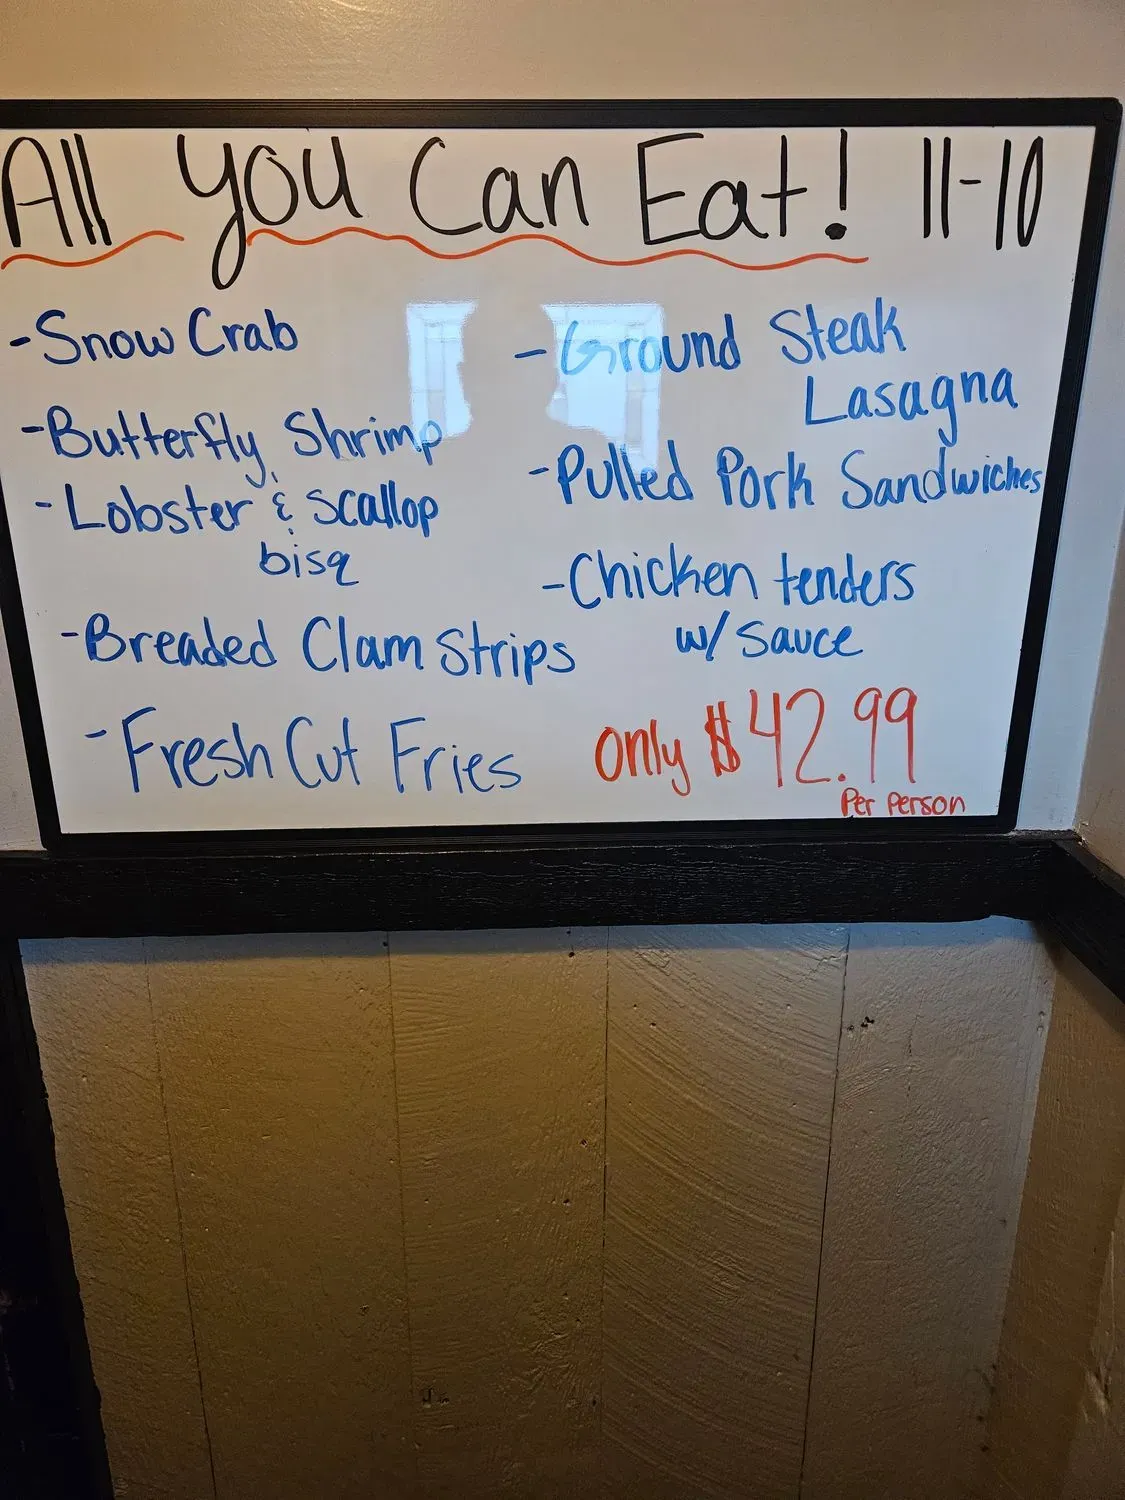 All You Can Eat! 11-10
- Snow Crab
- Butterfly Shrimp
- Lobster & Scallop
bisq
- Breaded Clam Strips
- Fresh Cut Fries
- Ground Steak
Lasagna
- Pulled Pork Sandwiches
- Chicken tenders
w/ Sauce
only $42.99
Per person